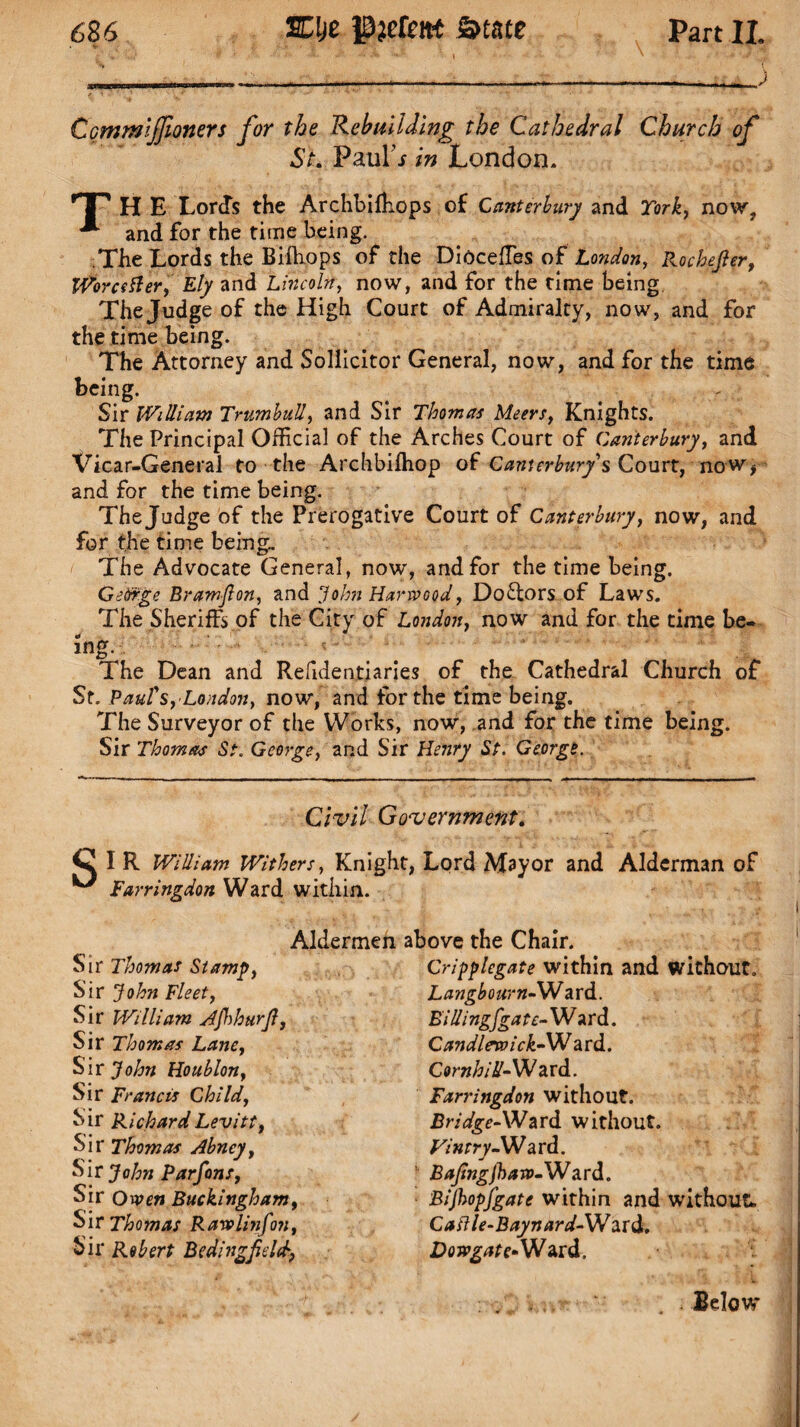 686 The Preſent State Part II.
Commiſſioners for the Rebuilding the Cathedral Church of
St. Paul's in London.
THE Lord's the Archbiſhops of Canterbury and York, now,
and for the time being.
The Lords the Biſhops of the Dioceſſes of London, Rocheſter,
Worceſter, Ely and Lincoln, now, and for the time being
The Judge of the High Court of Admiralty, now, and for
the time being.
The Attorney and Sollicitor General, now, and for the time
being.
Sir William Trumbull, and Sir Thomas Meers, Knights.
The Principal Official of the Arches Court of Canterbury, and
Vicar-General to the Archbiſhop of Canterbury's Court, now,
and for the time being.
The Judge of the Prerogative Court of Canterbury, now, and
for the time being.
The Advocate General, now, and for the time being.
George Bramſton, and John Harwood, Doctors of Laws.
The Sheriffs of the City of London, now and for the time be-
ing.
The Dean and Reſidentiaries of the Cathedral Church of
St. Paul's, London, now, and for the time being.
The Surveyor of the Works, now, and for the time being.
Sir Thomas St. George, and Sir Henry St. George.
Civil Government.
SIR William Withers, Knight, Lord Mayor and Alderman of
Farringdon Ward within.
Aldermen above the Chair.
Sir Thomas Stamp, Cripplegate within and without.
Sir John Fleet, Langbourn-Ward.
Sir William Aſhhurſt, Billingſgate-Ward.
Sir Thomas Lane, Candlewick-Ward.
Sir John Houblon, Cornhill-Ward.
Sir Francis Child, Farringdon without.
Sir Richard Levitt, Bridge-Ward without.
Sir Thomas Abney, Vintry-Ward.
Sir John Parſons, Baſingſhaw-Ward.
Sir Owen Buckingham, Biſhopſgate within and without.
Sir Thomas Rawlinſon, Caſtle-Baynard-Ward.
Sir Robert Bedingfield, Dowgate-Ward.
Below